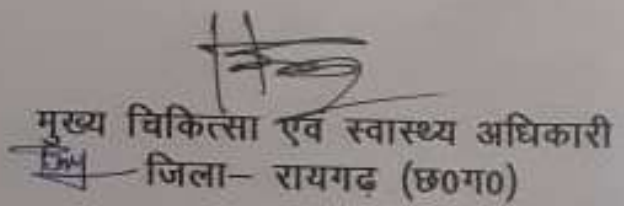 मुख्य चिकित्सा एवं स्वास्थ्य अधिकारी
जिला– रायगढ़ (छ0ग0)